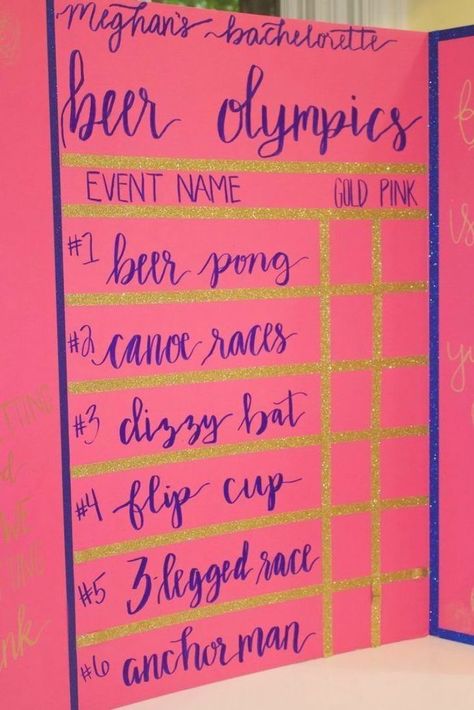 meghan's bachelorette
beer olympics
EVENT NAME GOLD PINK
#1 beer pong
#2 canoe races
#3 dizzy bat
#4 flip cup
#5 3-legged race
#6 anchorman